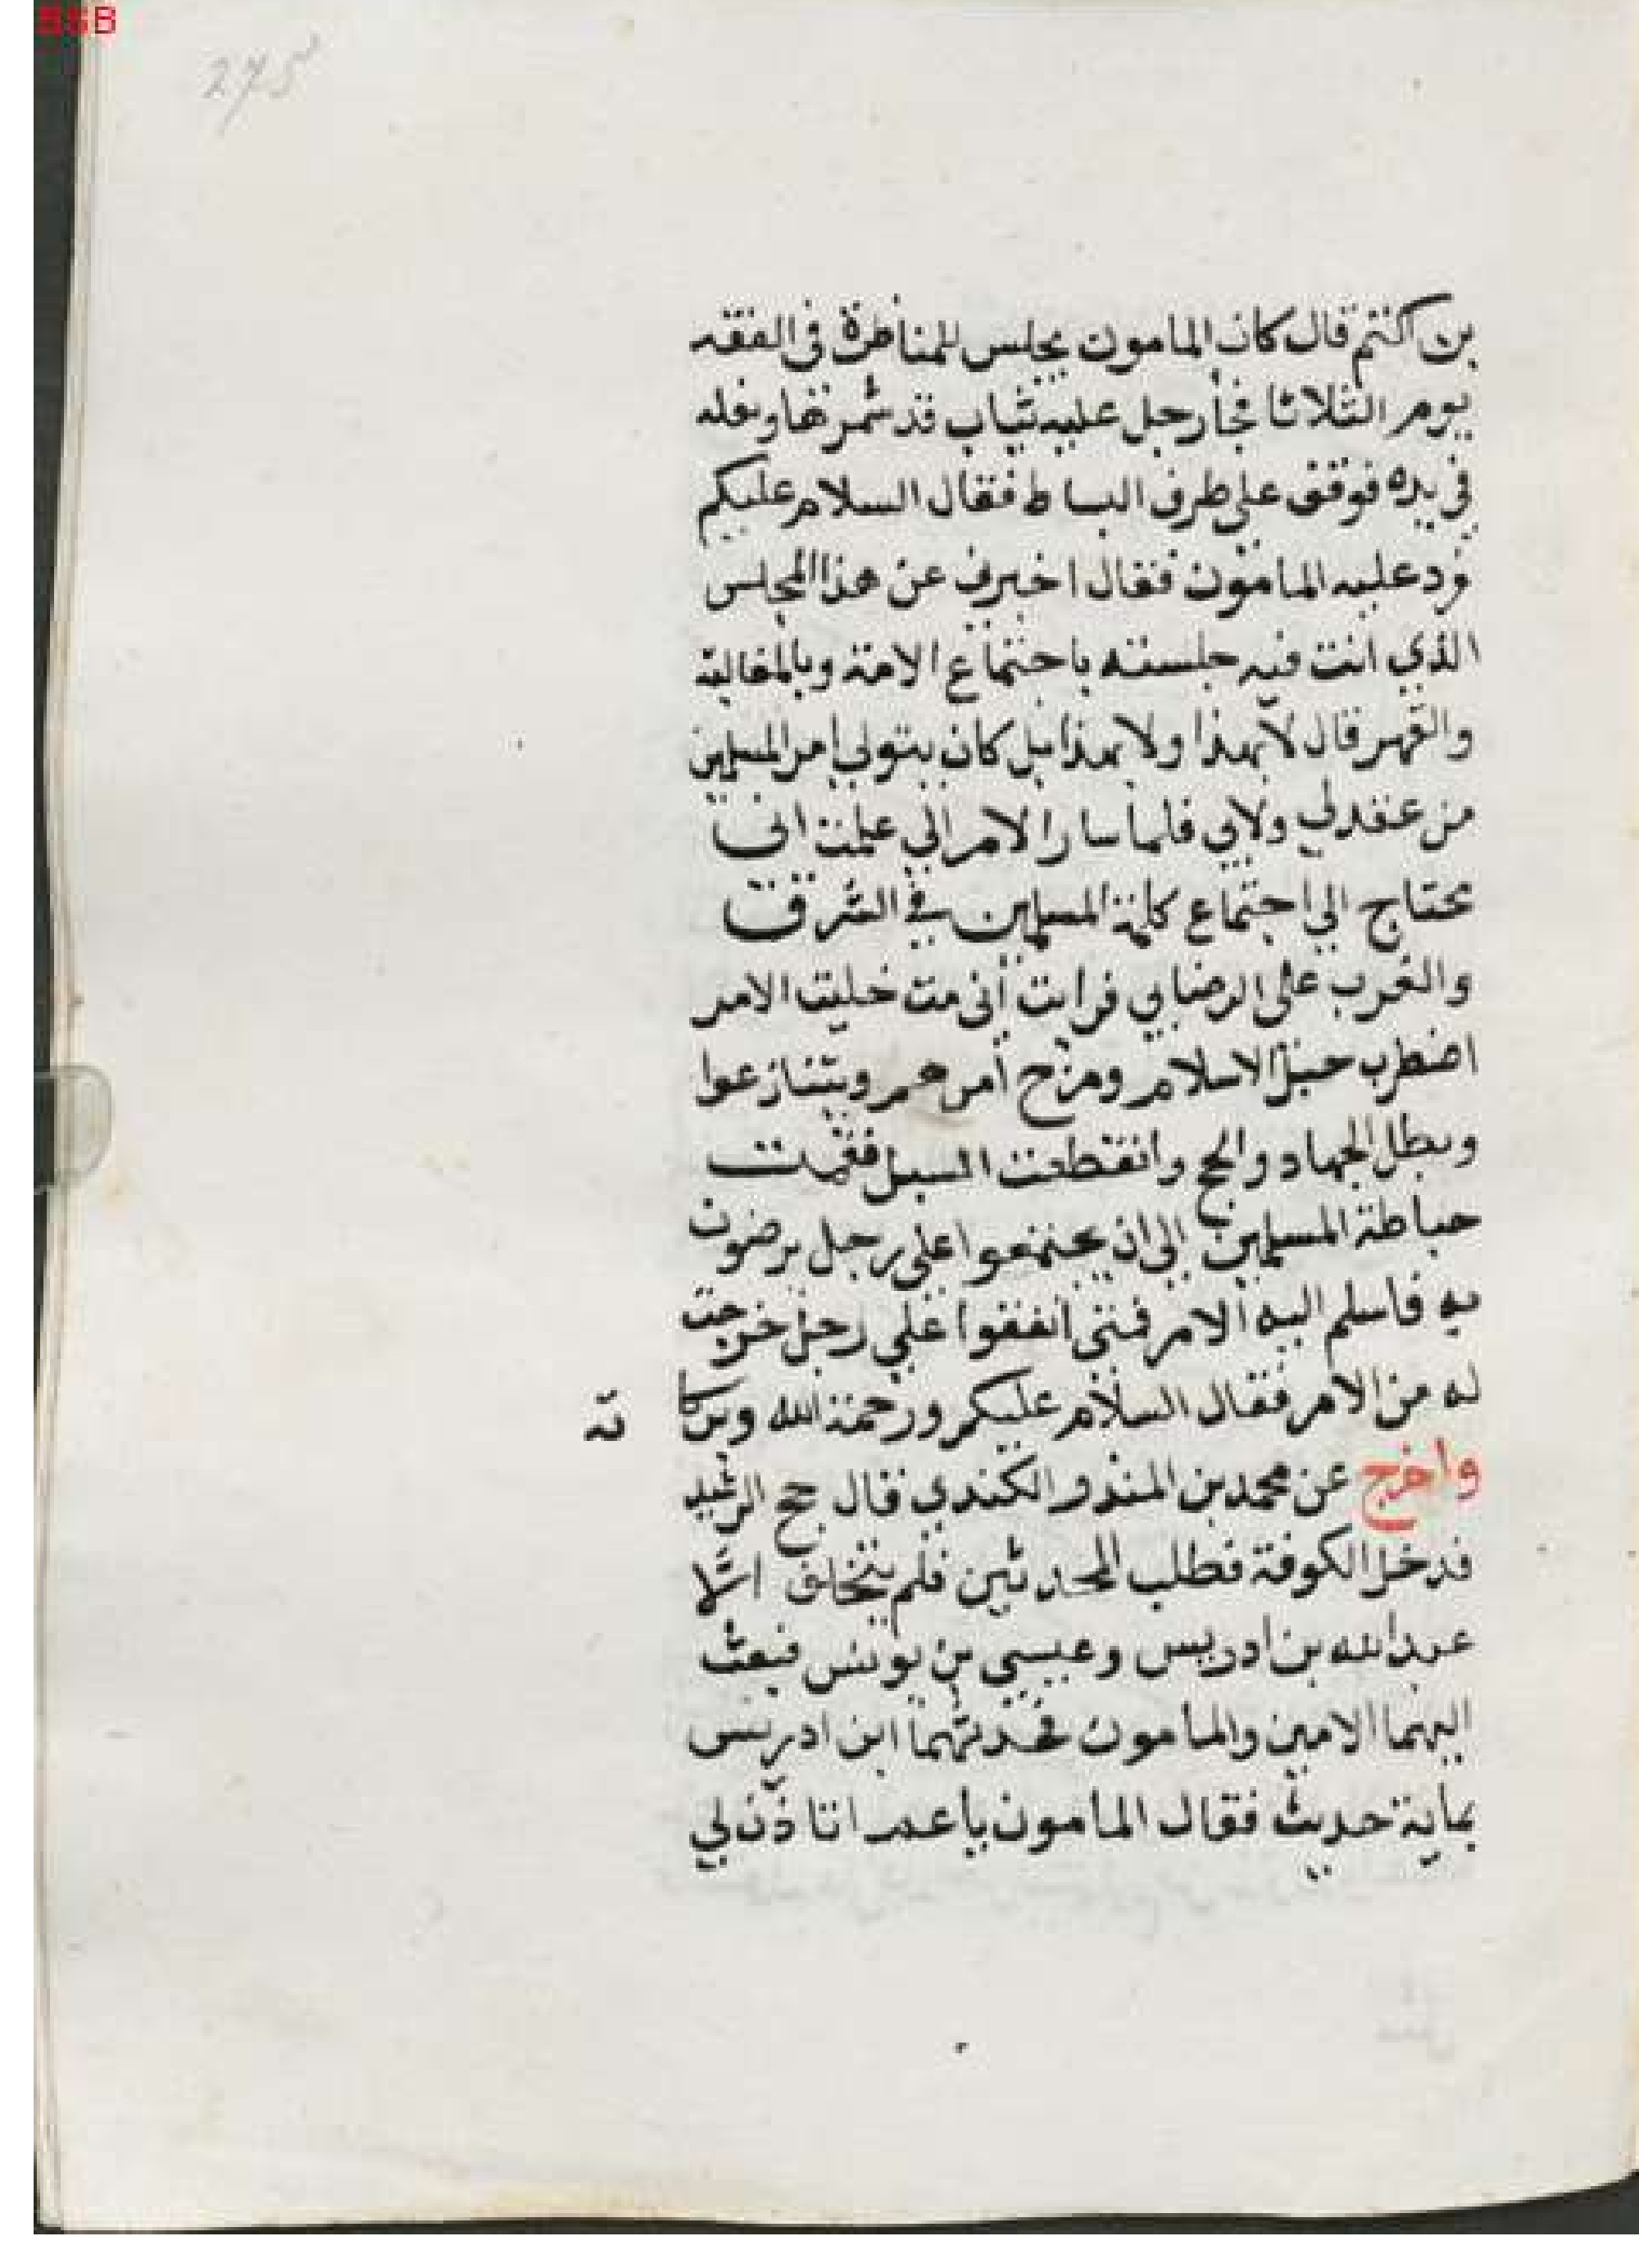 275
بن اكثم قال كان المامون يجلس للمناظرة في الفقه
يوم الثلاثا فجأ رجل عليه ثياب قد شمرها ونعله
في يده فوقف على طرف البساط فقال السلام عليكم
فرد عليه المامون فقال اخبرني عن هذا المجلس
الذي انت فيه جلسته باجتماع الامة وبالمغالبة
والقهر قال لا بهذا ولا بهذا بل كان يتولى امر المسلمين
من عقد لي ولاخي فلما سار الامر الي علمت اني
محتاج الي اجتماع كلمة المسلمين في الشرق
والغرب على الرضا بي فرايت أني متى خليت الامر
اضطرب حبل الاسلام ومرج أمرهم ويتنازعوا
وبطل الجهاد والحج وانقطعت السبل فقمت
حياطة المسلمين الى ان يجتمعوا على رجل يرضون
به فاسلم اليه الامر فمتى اتفقوا علي رجل خرجت
له من الامر فقال السلام عليكم ورحمة الله وبركاته
واخرج عن محمد بن المنذر الكندي قال حج الرشيد
فدخل الكوفة فطلب المحدثين فلم يتخلف الا
عبد الله بن ادريس وعيسي بن يونس فبعث
اليهما الامين والمامون فحدثهما ابن ادريس
بماية حديث فقال المامون يا عم اتاذن لي